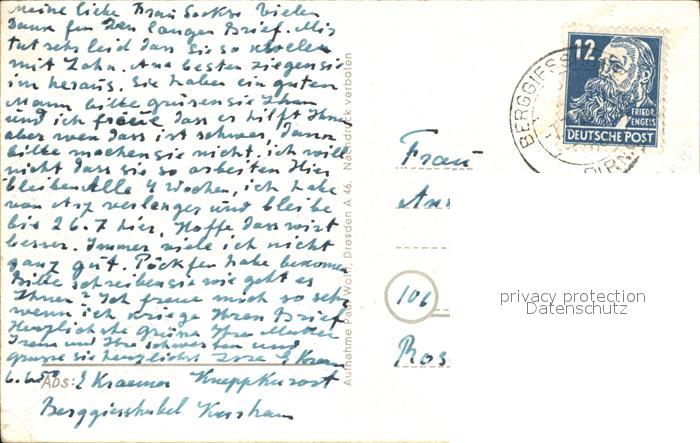 Meine liebe Frau Sackse vielen
Dank für den langen Brief. Mir
tut sehr leid dass Sie so
mit Zahn. Am besten ziegen sie
im heraus. Sie haben ein guten
Mann bitte grüssen sie Ihm
und ich freue dass er hilft Ihnen
aber wen dass ist schwer, dann
bitte machen sie nicht, ich will
nicht dass sie so arbeiten Hier
bleiben Alle 4 Wochen, ich habe
von Arz verlenger und bleibe
bis 26.7 hier. Hoffe dass wirt
besser. Immer viele ich nicht
ganz gut. Päckchen habe bekommen
Bitte schreiben sie wie geht es
Ihnen? Ich freue mich so sehr
wenn ich kriege Ihren Brief
Herzlichste grüsse Ihre Mutter
Irene und Ihre schwester und
grüsse sie herzlichst Ihre E Kraemer
6.6.
Abs: E Kraemer Kneippkurort
Berggiesshübel Kurhaus
Aufnahme Paul Wohr, Dresden A 46. Nachdruck verboten
12
FRIEDR.
ENGELS
DEUTSCHE POST
BERGGIESS
PIRNA
Frau
106
Ros
privacy protection
Datenschutz